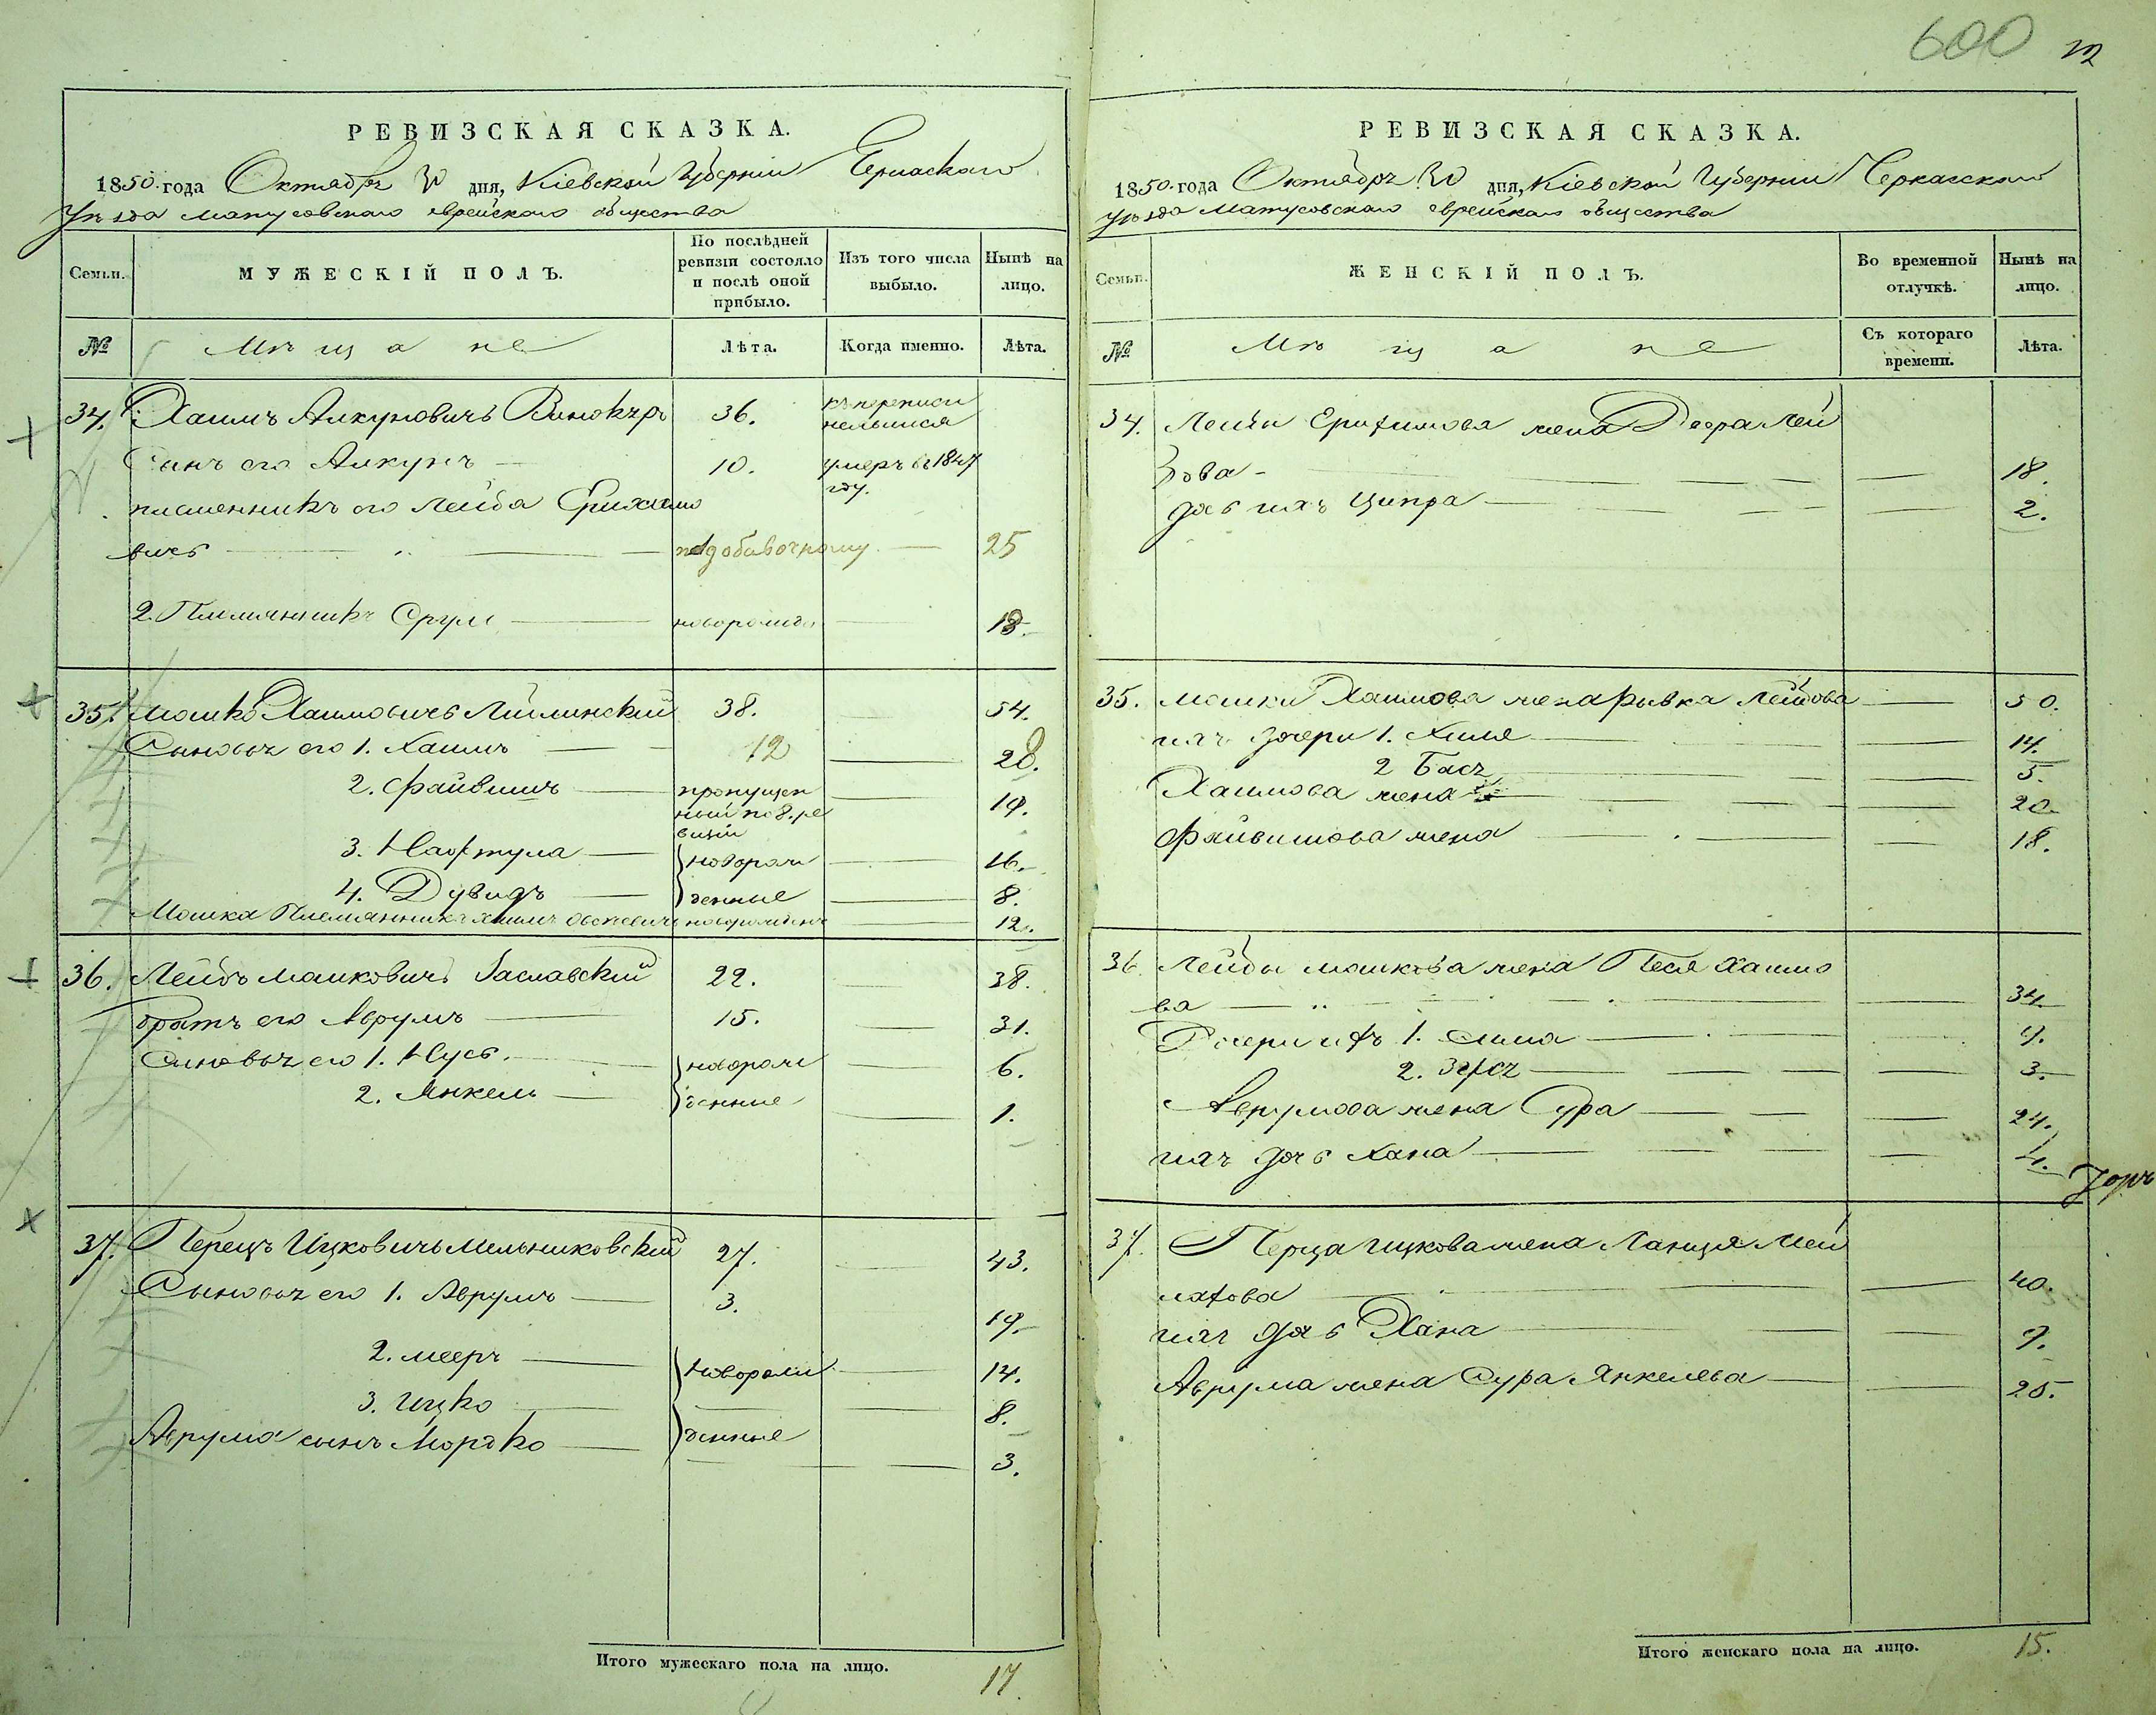 600
РЕВИЗСКАЯ СКАЗКА.
1850 года Октября 30 дня, Кіевской Губерніи Черкаскаго
Уѣзда Матусовскаго еврейскаго общества
Семьи.
МУЖЕСКІЙ ПОЛЪ.
По послѣдней ревизіи состояло и послѣ оной прибыло.
Изъ того числа выбыло.
Нынѣ на лицо.
№
Мѣщане
Лѣта.
Когда именно.
Лѣта.
34. Хаимъ Алкуновичъ Винокуръ 36. къ переписи неявился
Сынъ его Алкунъ 10. умеръ въ 1847 году.
племенникъ его Лейба Ерихимо
вичъ по добавочному 25
2. Племянникъ Сруль новорожд. 18.
35. Мошко Хаимовичъ 38. 54.
Сыновья его 1. Хаимъ 12 28.
2. Файвишъ пропущен
ный по 8. ре
визіи 19.
3. Нафтула новорож 16.
4. Дувидъ денные 8.
Мошка Племянникъ Хаимъ новорожден 12.
36. Лейбъ Мошковичъ Заславскій 22. 38.
братъ его Аврумъ 15. 31.
Сыновья его 1. Нусъ. новорож 6.
2. Янкель денные 1.
37. Перецъ Ицковичъ Мельниковскій 27. 43.
Сыновья его 1. Аврумъ 3. 19.
2. Мееръ новорож 14.
3. Ицко 8.
Аврума сынъ Мордко денные 3.
Итого мужескаго пола на лицо. 17.
РЕВИЗСКАЯ СКАЗКА.
1850 года Октября 30 дня, Кіевской Губерніи Черкасскаго
Уѣзда Матусовскаго еврейскаго общества
Семьи.
ЖЕНСКІЙ ПОЛЪ.
Во временной отлучкѣ.
Нынѣ на лицо.
№
Мѣщане
Съ котораго времени.
Лѣта.
34. Лейбы Ерихимова жена Двера Лей
зова 18.
дочь ихъ Ципра 2.
35. Мошки Хаимова жена Рывка Лейбова 50.
ихъ дочери 1. Хиля 14.
2 Бася 5.
Хаимова жена 20.
Файвишова жена 18.
36. Лейбы Мошкова жена Песя Хаимо
ва 34.
Дочери ихъ 1. 9.
2. 3.
Аврумова жена Сура 24.
ихъ дочь Хана 4.
37. Перца Ицкова жена Ланця Мей
лахова 40.
ихъ дочь Хана 9.
Аврума жена Сура Янкелева 20.
Итого женскаго пола на лицо. 15.